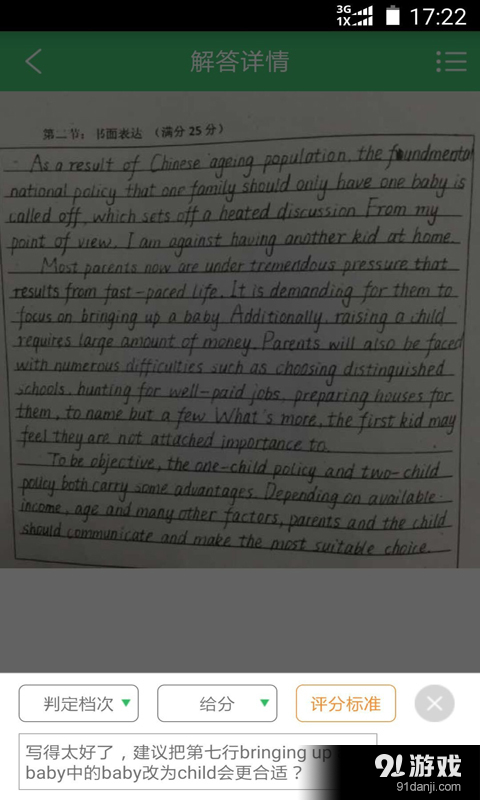 3G
1X
17:22
解答详情
第二节：书面表达 （满分25分）
As a result of Chinese ageing population, the foundmental
national policy that one family should only have one baby is
called off, which sets off a heated discussion. From my
point of view, I am against having another kid at home.
Most parents now are under tremendous pressure that
results from fast-paced life. It is demanding for them to
focus on bringing up a baby. Additionally, raising a child
requires large amount of money. Parents will also be faced
with numerous difficulties such as choosing distinguished
schools, hunting for well-paid jobs, preparing houses for
them, to name but a few. What's more, the first kid may
feel they are not attached importance to.
To be objective, the one-child policy and two-child
policy both carry some advantages. Depending on available
income, age and many other factors, parents and the child
should communicate and make the most suitable choice.
判定档次
给分
评分标准
写得太好了，建议把第七行bringing up
baby中的baby改为child会更合适？
91游戏
91danji.com